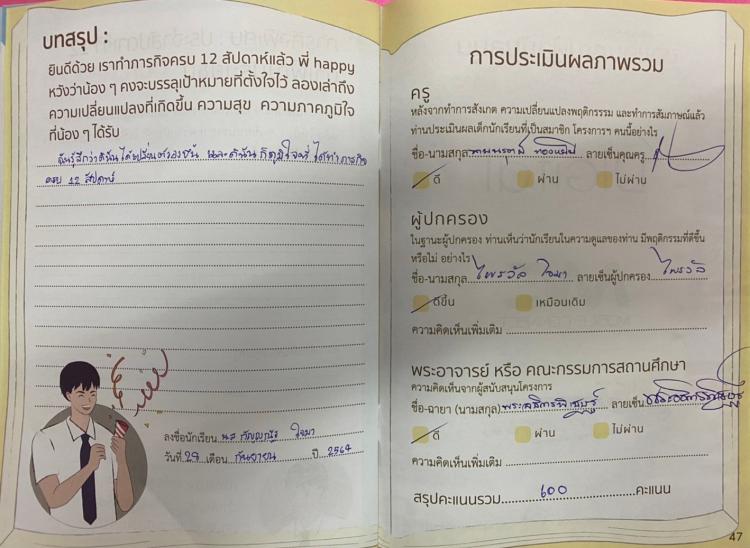 บทสรุป :
ยินดีด้วย เราทำภารกิจครบ 12 สัปดาห์แล้ว พี่ happy
หวังว่าน้อง ๆ คงจะบรรลุเป้าหมายที่ตั้งใจไว้ ลองเล่าถึง
ความเปลี่ยนแปลงที่เกิดขึ้น ความสุข ความภาคภูมิใจ
ที่น้อง ๆ ได้รับ
ฉันรู้สึกว่าฉันได้เปลี่ยนตัวเองขึ้น และดิฉันก็ภูมิใจที่ได้ทำภารกิจ
ครบ 12 สัปดาห์
ลงชื่อนักเรียน นส กัญญาณัฐ ใจมา
วันที่ 29 เดือน กันยายน ปี 2564
การประเมินผลภาพรวม
ครู
หลังจากทำการสังเกต ความเปลี่ยนแปลงพฤติกรรม และทำการสัมภาษณ์แล้ว
ท่านประเมินผลเด็กนักเรียนที่เป็นสมาชิก โครงการฯ คนนี้อย่างไร
ชื่อ-นามสกุล ลายเซ็นคุณครู
ดี ผ่าน ไม่ผ่าน
ผู้ปกครอง
ในฐานะผู้ปกครอง ท่านเห็นว่านักเรียนในความดูแลของท่าน มีพฤติกรรมที่ดีขึ้น
หรือไม่ อย่างไร
ชื่อ-นามสกุล ไพรวัล ใจมา ลายเซ็นผู้ปกครอง ไพรวัล
ดีขึ้น เหมือนเดิม
ความคิดเห็นเพิ่มเติม
พระอาจารย์ หรือ คณะกรรมการสถานศึกษา
ความคิดเห็นจากผู้สนับสนุนโครงการ
ชื่อ-ฉายา (นามสกุล) ลายเซ็น
ดี ผ่าน ไม่ผ่าน
ความคิดเห็นเพิ่มเติม
สรุปคะแนนรวม 600 คะแนน
47